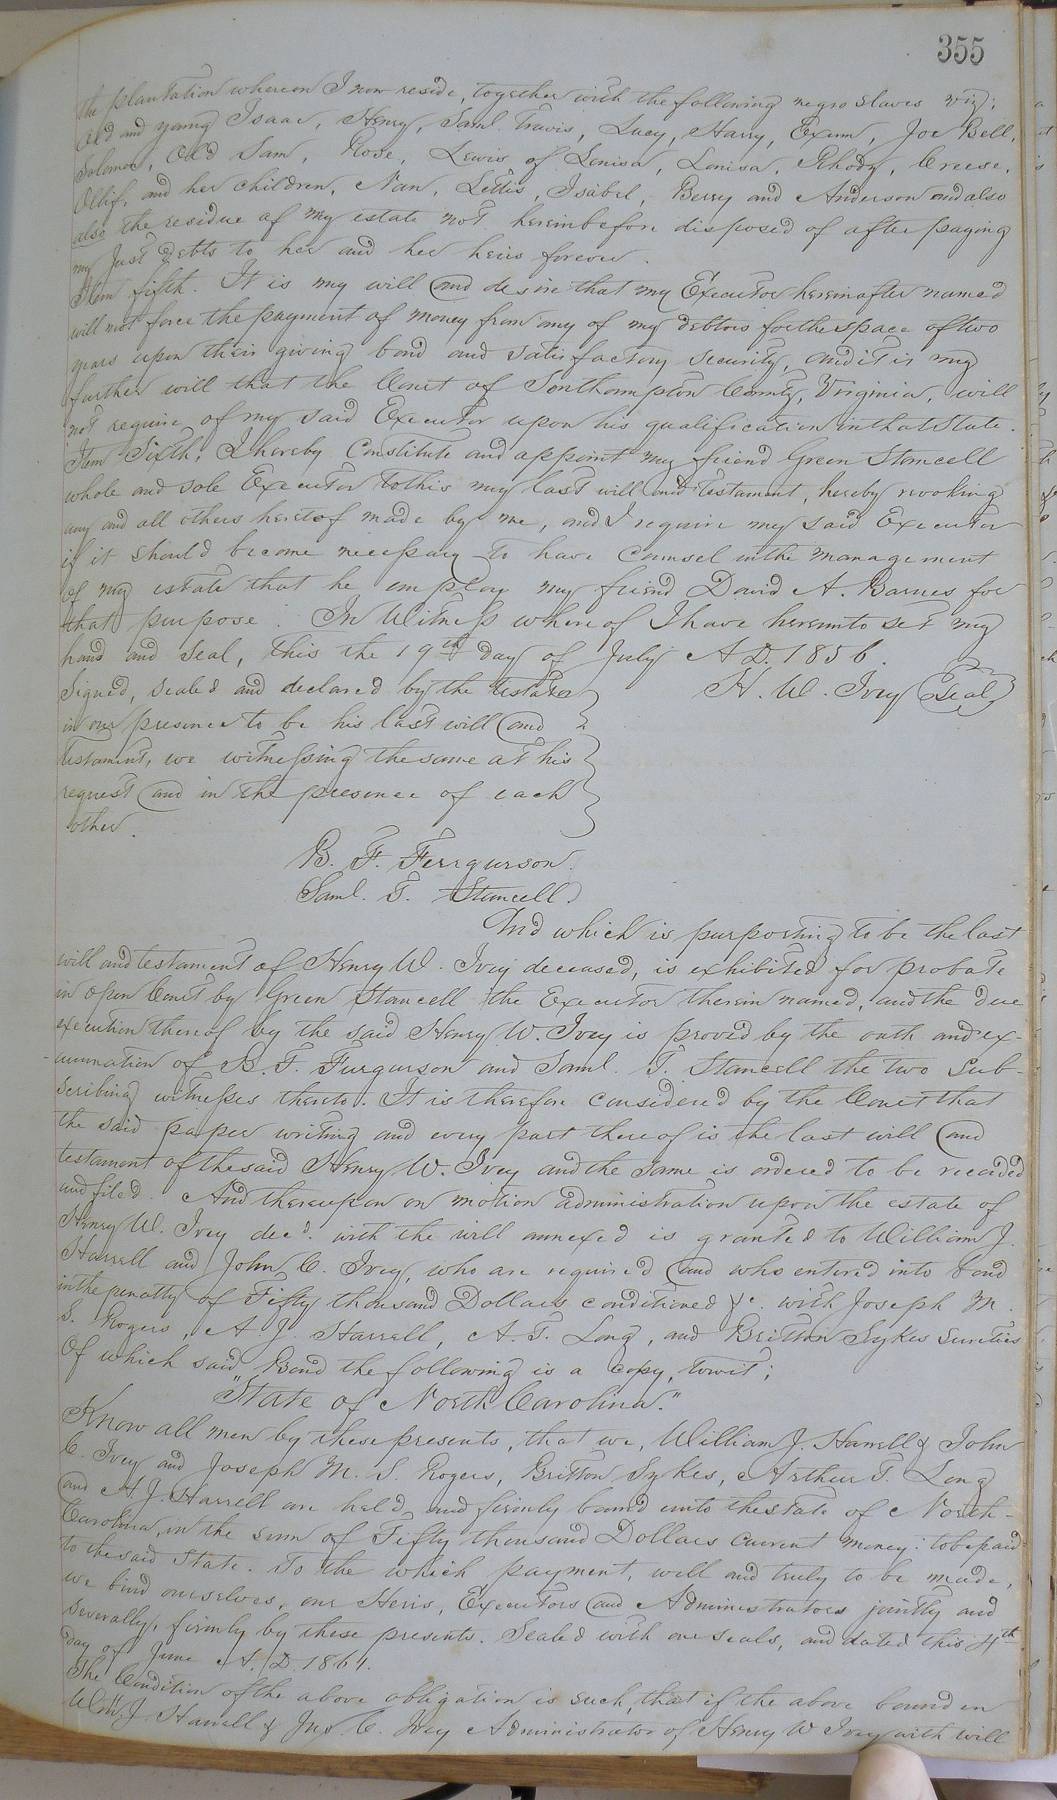 355
the plantation whereon I now reside, together with the following negro slaves viz;
Old and young Isaac, Henry, Saml. Travis, Lucy, Harry, Exum, Joe Bell,
Solomon, Old Sam, Rose, Lewis of Lenisa, Lenisa, Rhody, Creese,
Ollif, and her children, Nan, Lettis, Isabel, Berry and Anderson and also
also the residue of my estate not hereinbefore disposed of after paying
my Just debts to her and her heirs forever.
Item fifth. It is my will and desire that my Executor hereinafter named
will not force the payment of money from any of my debtors for the space of two
years upon their giving bond and satisfactory security, and it is my
further will that the Court of Southampton County, Virginia, will
not require of my said Executor upon his qualification in that State.
Item Sixth; I hereby Constitute and appoint my friend Green Stancell
whole and sole Executor to this my last will and testament, hereby revoking
any and all others heretof made by me, and I require my said Executor
if it should become necessary to have Counsel in the management
of my estate that he employ my friend David A. Barnes for
that purpose. In Witness whereof I have hereunto set my
hand and seal, this the 19th day of July A.D. 1856.
Signed, sealed and declared by the testator H. W. Ivey Seal
in our presence to be his last will and
testament, we witnessing the same at his
request and in the presence of each
other.
B. F. Ferrgurson.
Saml. T. Stancell.
And which is purporting to be the last
will and testament of Henry W. Ivey deceased, is exhibited for probate
in open Court by Green Stancell the Executor therein named, and the due
execution thereof by the said Henry W. Ivey is proved by the oath and ex-
amination of B. F. Furgurson and Saml. T. Stancell the two Sub-
scribing witnesses thereto. It is therefore considered by the Court that
the said paper writing and every part thereof is the last will and
testament of the said Henry W. Ivey and the same is ordered to be recorded
and filed. And thereupon on motion administration upon the estate of
Henry W. Ivey decd. with the will annexed is granted to William J.
Harrell and John C. Ivey, who are required and who entered into bond
in the penalty of Fifty thousand Dollars conditioned &c. with Joseph M.
S. Rogers, A. J. Harrell, A. T. Long, and Britton Sykes sureties
Of which said Bond the following is a copy, towit;
"State of North Carolina."
Know all men by these presents, that we, William J. Harrell & John
C. Ivey and Joseph M. S. Rogers, Britton Sykes, Arthur T. Long
and A. J. Harrell are held and firmly bound unto the State of North-
Carolina, in the sum of Fifty thousand Dollars current money: to be paid
to the said State. To the which payment, well and truly to be made,
we bind ourselves, our Heirs, Executors and Administrators jointly and
severally, firmly by these presents. Sealed with our seals, and dated this 4th
day of June A.D. 1861.
The Condition of the above obligation is such, that if the above bounden
Wm J. Harrell & Jno C. Ivey Administrator of Henry W Ivey with will